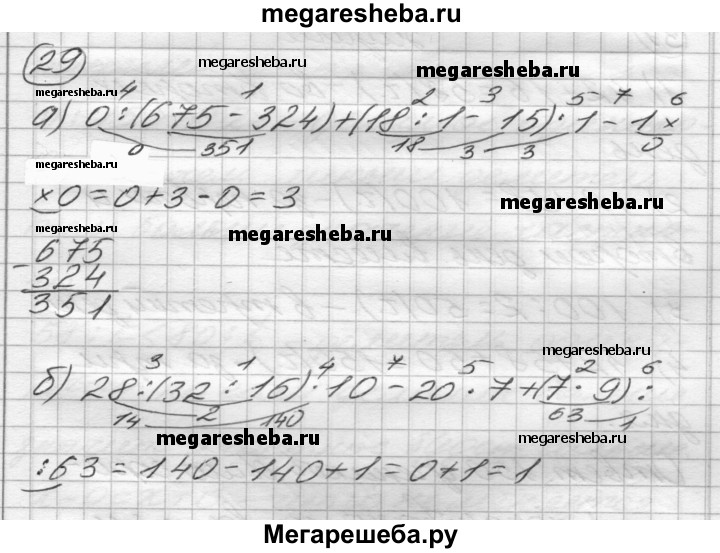 megaresheba.ru
29 megaresheba.ru megaresheba.ru
megaresheba.ru 4 1 2 3 5 7 6
а) 0:(675-324)+(18:1-15):1-1×
0 351 18 3 3 0
×0=0+3-0=3 megaresheba.ru
megaresheba.ru megaresheba.ru
675
-324
351
megaresheba.ru
3 1 4 7 5 2 6
б) 28:(32:16)·10-20·7+(7·9):
14 2 140 63 1
megaresheba.ru megaresheba.ru
:63=140-140+1=0+1=1
megaresheba.ru
Мегарешеба.ру